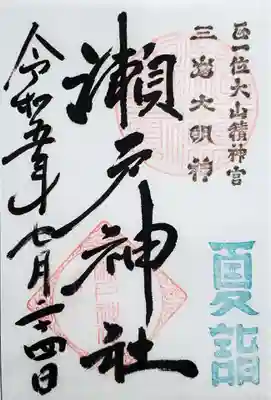 正一位大山積神宮
三嶌大明神
夏詣
瀬戸神社
令和五年七月二十四日